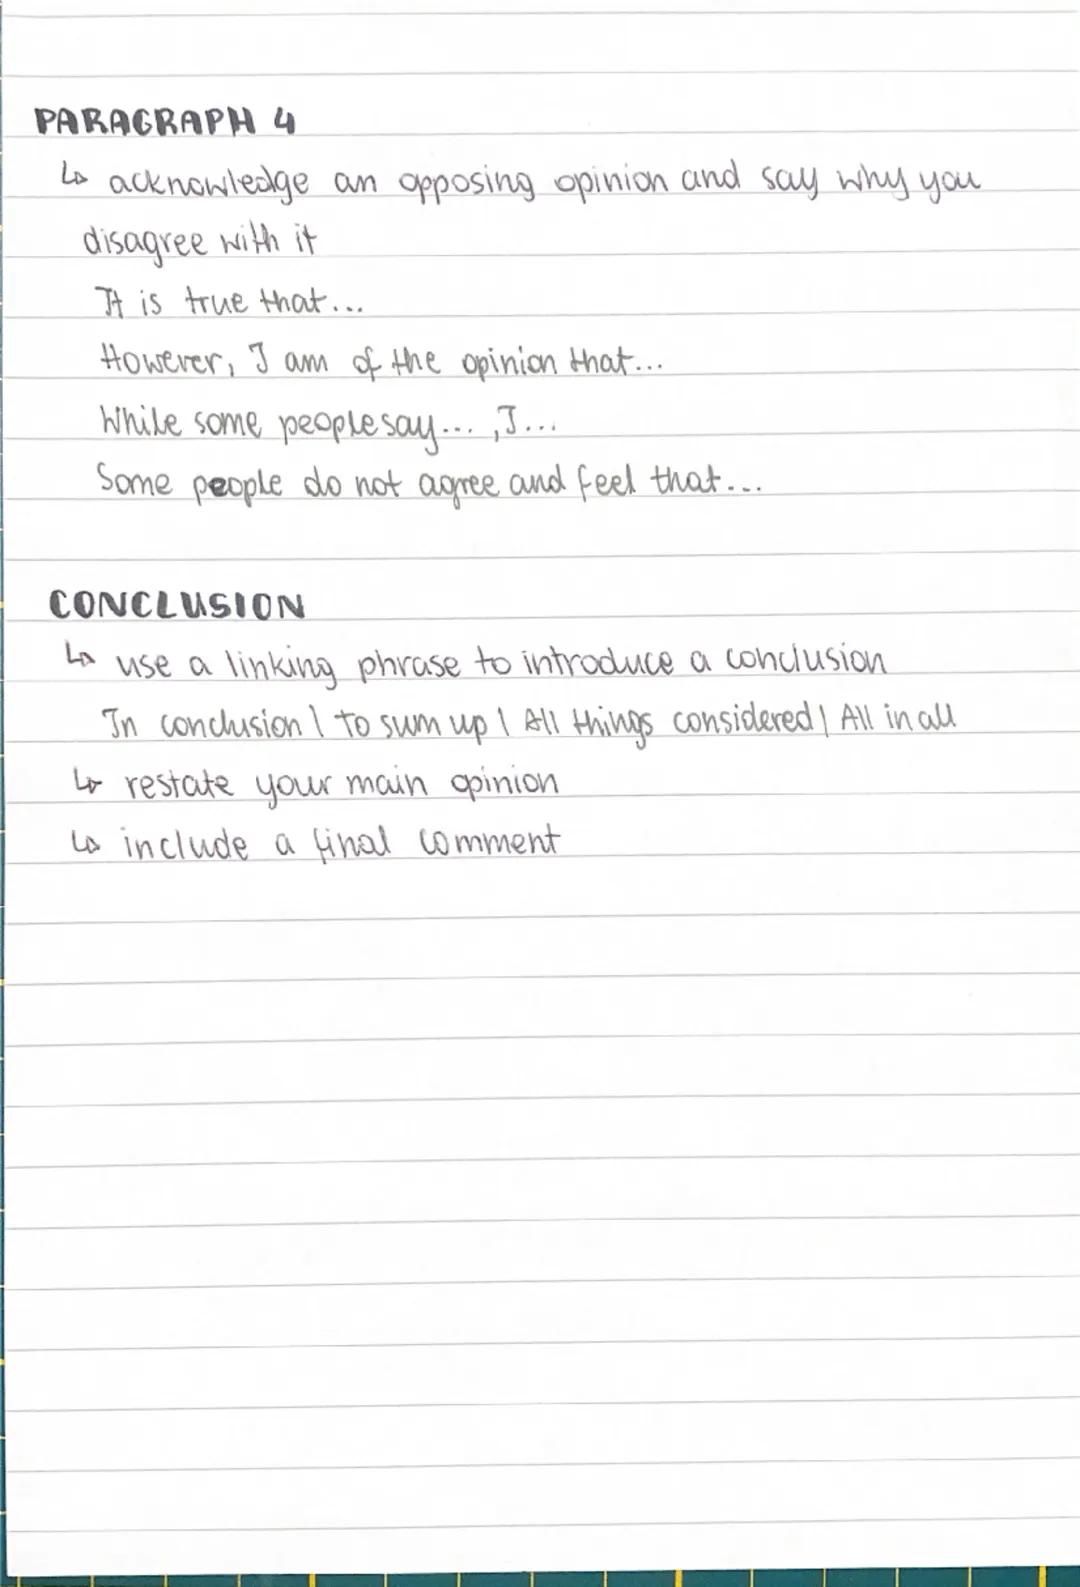 PARAGRAPH 4
↳ acknowledge an opposing opinion and say why you
disagree with it
It is true that...
However, I am of the opinion that...
While some people say... , I...
Some people do not agree and feel that...
CONCLUSION
↳ use a linking phrase to introduce a conclusion
In conclusion | to sum up | All things considered | All in all
↳ restate your main opinion
↳ include a final comment